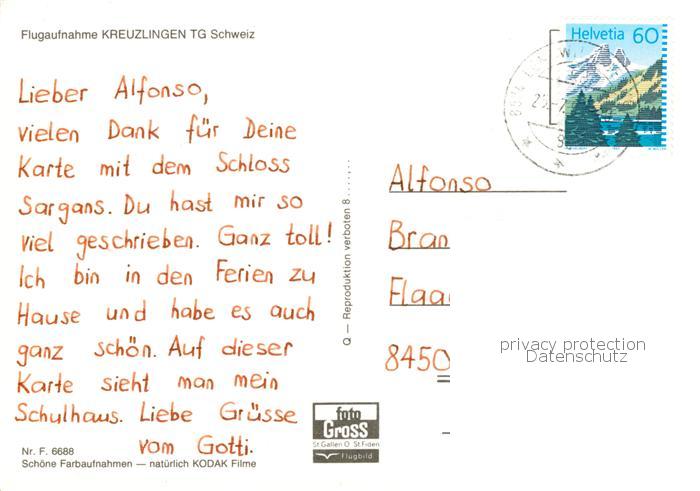 Flugaufnahme KREUZLINGEN TG Schweiz
Helvetia 60
Lieber Alfonso,
vielen Dank für Deine
Karte mit dem Schloss
Sargans. Du hast mir so
viel geschrieben. Ganz toll!
Ich bin in den Ferien zu
Hause und habe es auch
ganz schön. Auf dieser
Karte sieht man mein
Schulhaus. Liebe Grüsse
vom Gotti.
Q — Reproduktion verboten 8......
Alfonso
Bran
Flaa
8450
privacy protection
Datenschutz
foto
Gross
St Gallen O. St Fiden
Flugbild
Nr. F. 6688
Schöne Farbaufnahmen — natürlich KODAK Filme